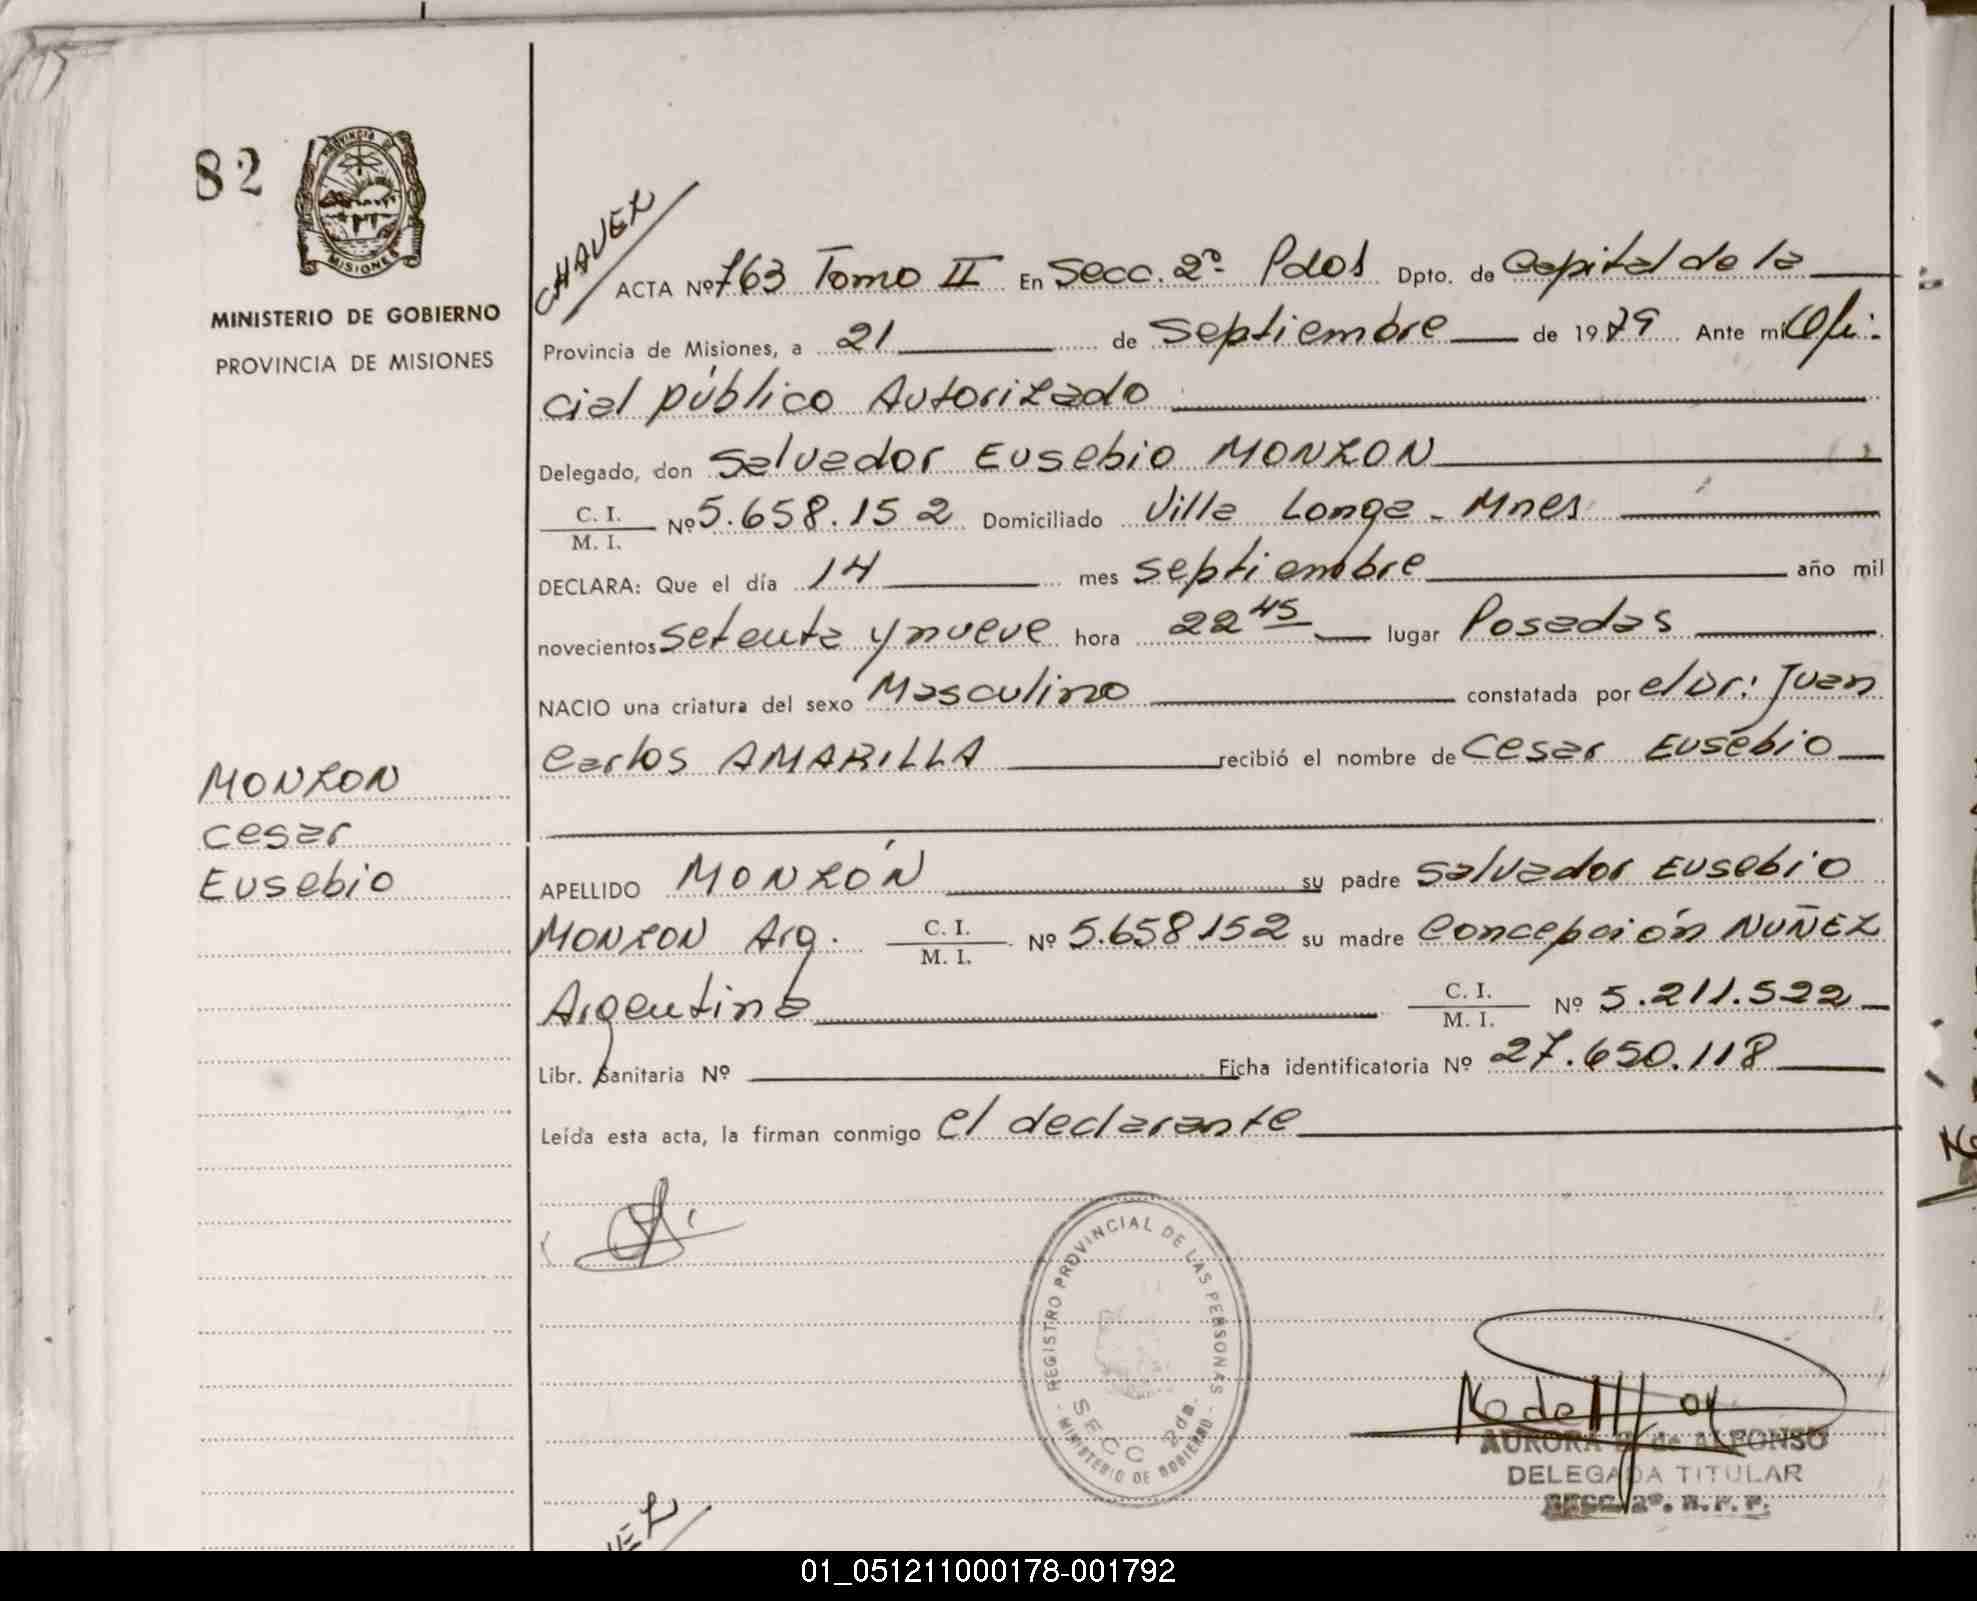 82
PROVINCIA DE
MISIONES
MINISTERIO DE GOBIERNO
PROVINCIA DE MISIONES
CHAVEZ
ACTA Nº 763 Tomo II En Secc. 2ª Pdas Dpto. de Capital de la
Provincia de Misiones, a 21 de Septiembre de 1979 Ante mi Ofi-
cial público Autorizado
Delegado, don Salvador Eusebio MONZON
C. I.
M. I. Nº 5.658.152 Domiciliado Villa Longa - Mnes
DECLARA: Que el día 14 mes septiembre año mil
novecientos setenta y nueve hora 22 45 lugar Posadas
NACIO una criatura del sexo Masculino constatada por el Dr. Juan
Carlos AMARILLA recibió el nombre de Cesar Eusebio
MONZON
Cesar
Eusebio
APELLIDO MONZÓN su padre Salvador Eusebio
MONZON Arg. C. I.
M. I. Nº 5.658152 su madre Concepción NUÑEZ
Argentina C. I.
M. I. Nº 5.211.522
Libr. Sanitaria Nº Ficha identificatoria Nº 27.650.118
Leída esta acta, la firman conmigo el declarante
REGISTRO PROVINCIAL DE LAS PERSONAS
SECC 2da.
MINISTERIO DE GOBIERNO
AURORA de ALFONSO
DELEGADA TITULAR
SECC. 2ª. R. P. P.
01_051211000178-001792